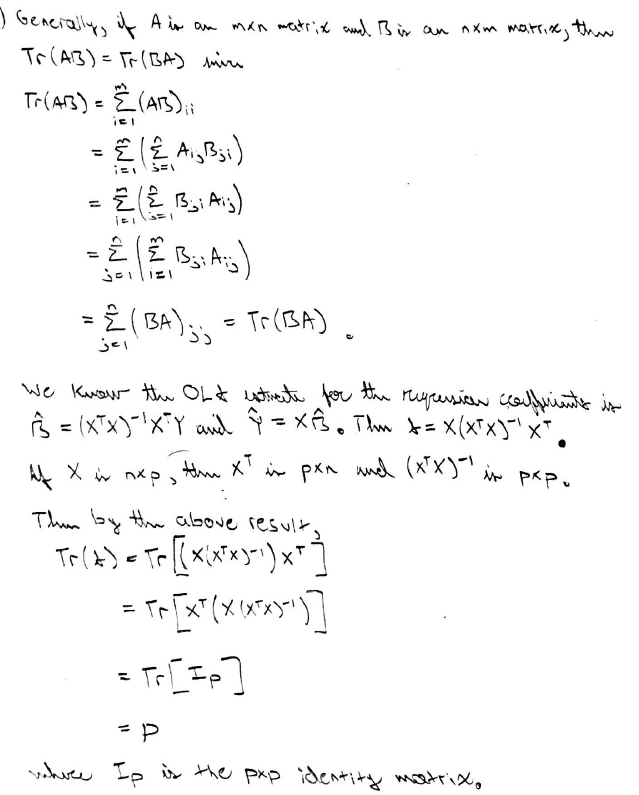 ) Generally, if A is an mxn matrix and B is an nxm matrix, then
Tr(AB) = Tr(BA) since
Tr(AB) = Σ_{i=1}^{m} (AB)_{ii}
= Σ_{i=1}^{m} (Σ_{j=1}^{n} A_{ij} B_{ji})
= Σ_{i=1}^{m} (Σ_{j=1}^{n} B_{ji} A_{ij})
= Σ_{j=1}^{n} (Σ_{i=1}^{m} B_{ji} A_{ij})
= Σ_{j=1}^{n} (BA)_{jj} = Tr(BA).
We know the OLS estimate for the regression coefficients is
β̂ = (XᵀX)⁻¹XᵀY and Ŷ = Xβ̂. Then S = X(XᵀX)⁻¹Xᵀ.
If X is nxp, then Xᵀ is pxn and (XᵀX)⁻¹ is pxp.
Then by the above result,
Tr(S) = Tr[(X(XᵀX)⁻¹)Xᵀ]
= Tr[Xᵀ(X(XᵀX)⁻¹)]
= Tr[I_p]
= p
where I_p is the pxp identity matrix.